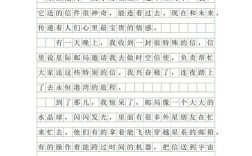 它送的信件很神奇，能连着过去、现在和未来，
传递着人们心里最宝贵的情感。
有一天晚上，我收到一封很特殊的信，信
里说星际邮局邀请我去做时空信使，负责帮忙
大家送这些特别的信。我兴奋极了，连夜踏上
了去永恒港湾的旅程。
到了那儿，我惊呆了，邮局像一个大大的
水晶球，闪闪发光，里面有很多外星朋友在忙
来忙去。他们有的拿着能飞快穿越星系的邮包，
有的操作着能跨过时间的机器，把信送到宇宙